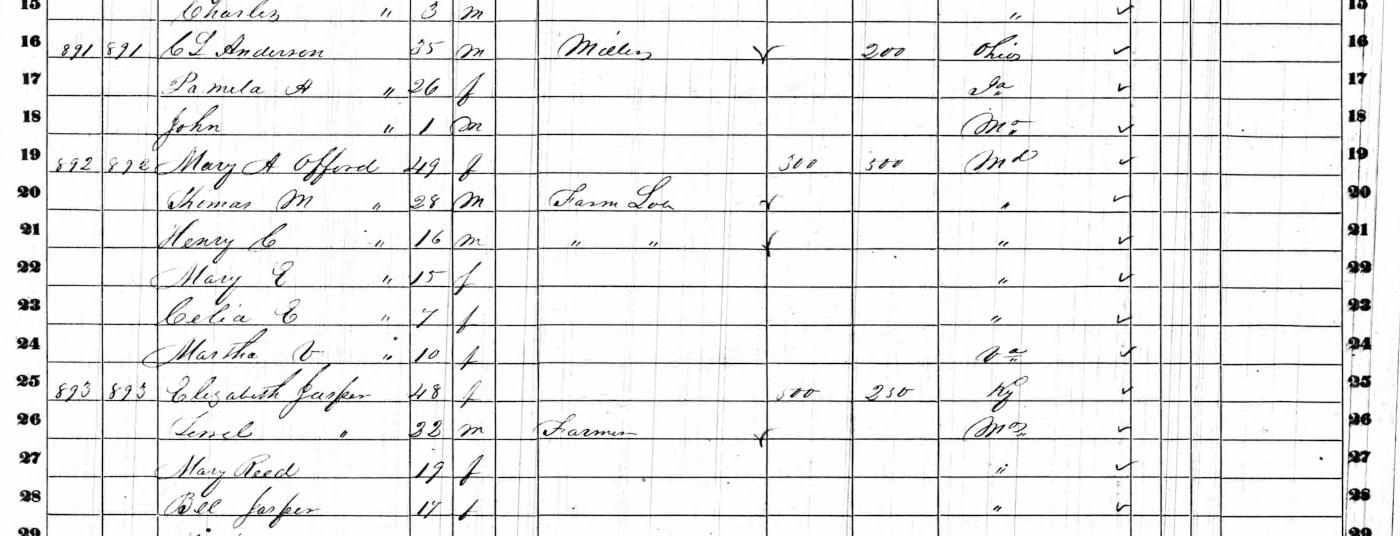 15 Charles " 3 m " ✓ 15
16 891 891 C L Anderson 35 m Miller 200 Ohio ✓ 16
17 Pamela A " 26 f ✓ 17
18 John " 1 m Mo ✓ 18
19 892 892 Mary A Offord 49 f 300 500 Md ✓ 19
20 Thomas M " 28 m Farm " ✓ 20
21 Henry C " 16 m " " " ✓ 21
22 Mary E " 15 f " ✓ 22
23 Celia E " 7 f " ✓ 23
24 Martha V " 10 f Va ✓ 24
25 893 893 Elizabeth Jasper 48 f 250 Ky ✓ 25
26 " 22 m Farmer Mo ✓ 26
27 Mary Reed 19 f " ✓ 27
28 Bell Jasper 17 f " ✓ 28
29 29